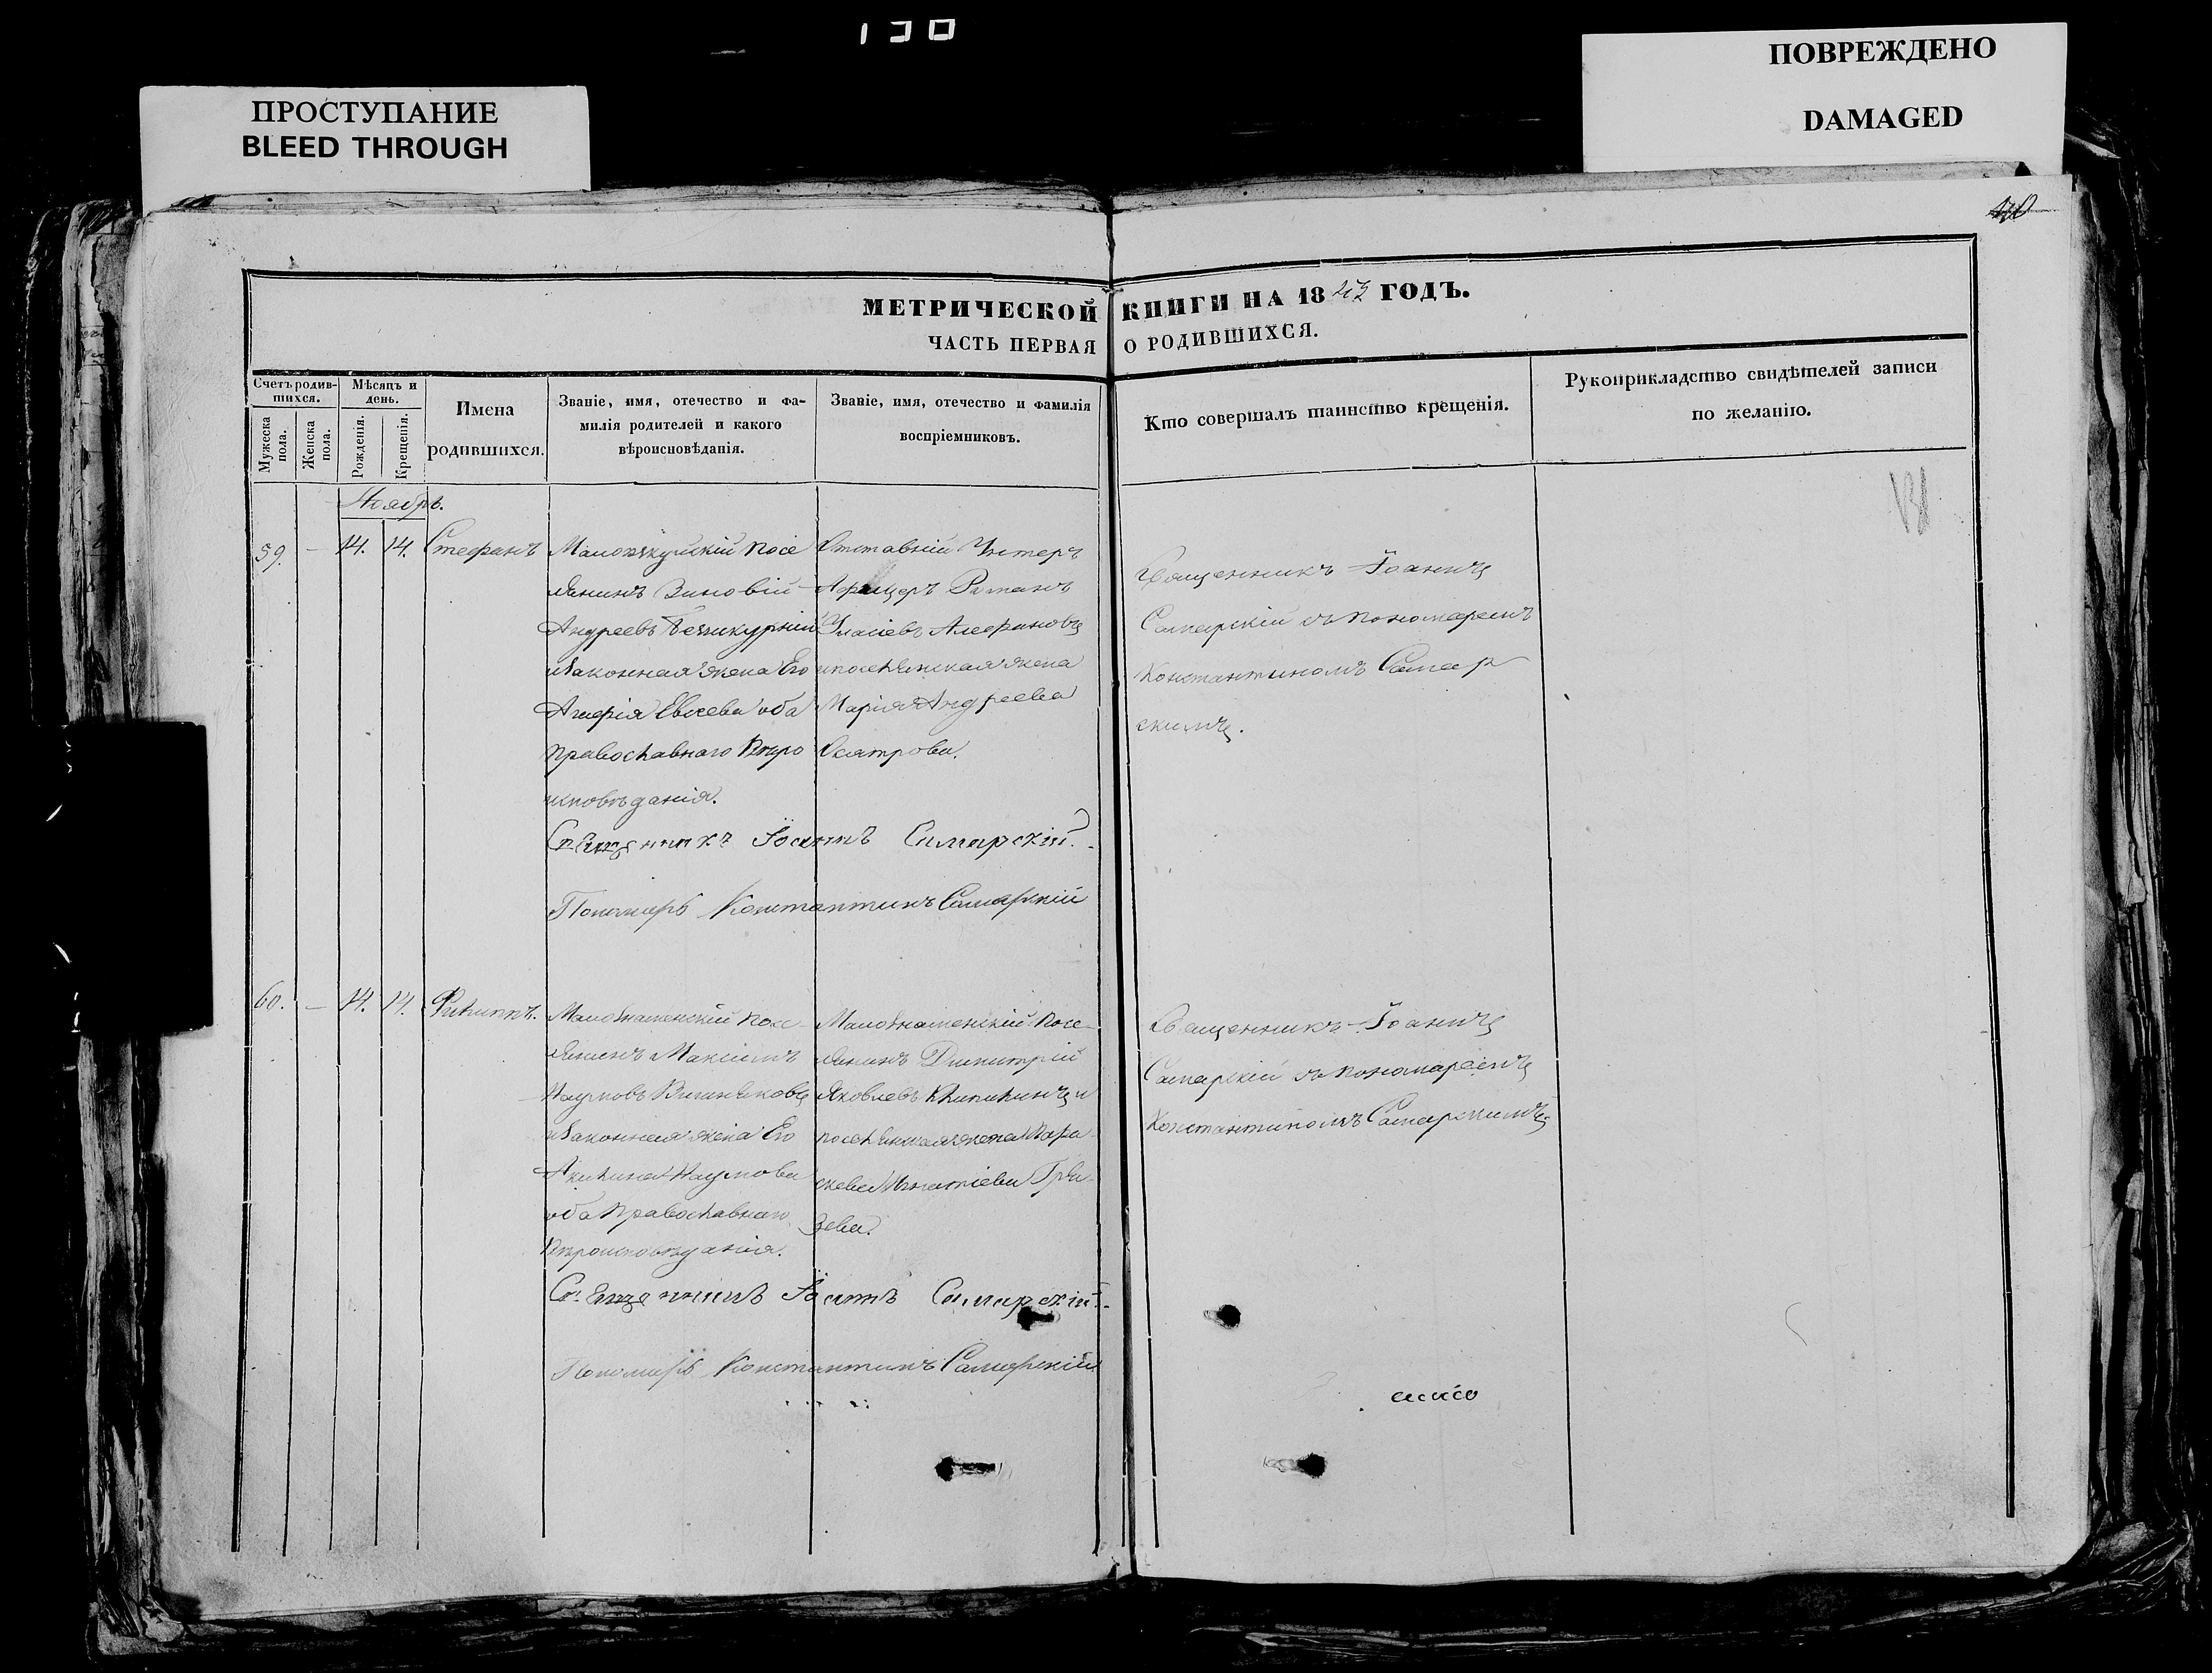 130
ПРОСТУПАНИЕ
BLEED THROUGH
ПОВРЕЖДЕНО
DAMAGED
МЕТРИЧЕСКОЙ КНИГИ НА 18 ГОДЪ.
ЧАСТЬ ПЕРВАЯ О РОДИВШИХСЯ.
Счетъ родив-
шихся.
Мужеска
пола.
Женска
пола.
Мѣсяцъ и
день.
Рожденія.
Крещенія.
Имена
родившихся.
Званіе, имя, отечество и фа-
милія родителей и какого
вѣроисповѣданія.
Званіе, имя, отечество и фамилія
воспріемниковъ.
Кто совершалъ таинство крещенія.
Рукоприкладство свидѣтелей записи
по желанію.
Ноябрь.
59. — 14. 14. Стефанъ
посе
лянинъ Зиновій
Андреевъ
и законная жена Его
Евсеева оба
православнаго Вѣро
исповѣданія.
Отставній Унтеръ
Афицеръ Романъ
и поселянская жена
Марія Андреева
Осятрова.
Священникъ Іоаннъ
Самарскій съ пономаремъ
Константиномъ Самар
скимъ.
Священникъ Іоаннъ Самарскій.
Пономарь Константинъ Самарскій
60. — 14. 14. Филиппъ.
Малознаменскій посе-
лянинъ Максимъ
Наумовъ
и законная жена Его
Акилина Наумова
оба православнаго
Вѣроисповѣданія.
Малознаменскій посе-
лянинъ Димитрій
Яковлевъ и
поселянская жена Пара-
скева Игнатіева Гря-
зева.
Священникъ Іоаннъ
Самарскій съ пономаремъ
Константиномъ Самарскимъ
Священникъ Іоаннъ Самарскій.
Пономарь Константинъ Самарскій